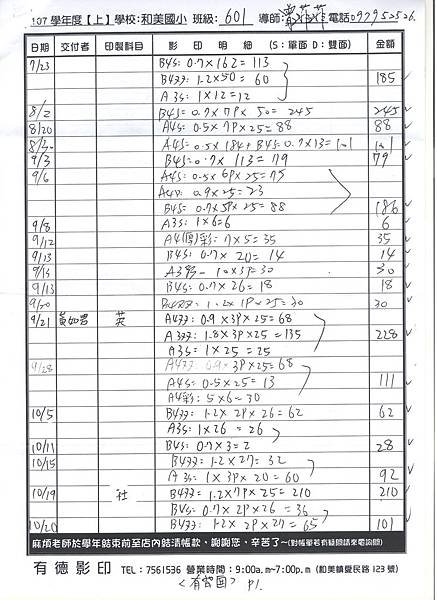 107學年度【上】學校:和美國小 班級: 601 導師: 電話
日期 交付者 印製科目 影印明細 (S:單面 D:雙面) 金額
7/23 B4S: 0.7×162=113
B4双: 1.2×50=60 185
A3S: 1×12=12
8/2 B4S: 0.7×7P×50=245 245
8/20 A4S: 0.5×7P×25=88 88
A4S: 0.5×184+B4S: 0.7×13=101 101
9/3 B4S: 0.7×113=79 79
9/6 A4S: 0.5×6P×25=75
A4双: 0.9×25=23
B4S: 0.7×5P×25=88 186
9/8 A3S: 1×6=6 6
9/12 A4(厚)彩: 7×5=35 35
9/13 B4S: 0.7×20=14 14
9/13 10×3P=30 30
9/13 B4S: 0.7×26=18 18
9/20 B4双: 1.2×1P×25=30 30
9/21 英 A4双: 0.9×3P×25=68
A3双: 1.8×3P×25=135 228
A3S: 1×25=25
9/28 A4双: 0.9×3P×25=68
A4S: 0.5×25=13 111
A4彩: 5×6=30
10/5 B4双: 1.2×2P×26=62 62
A3S: 1×26=26
10/11 B4S: 0.7×3=2 28
10/15 B4双: 1.2×27=32
A3S: 1×3P×20=60 92
10/19 社 B4双: 1.2×7P×25=210 210
B4S: 0.7×2P×26=36
10/20 B4双: 1.2×2P×27=65 101
麻煩老師於學年結束前至店內結清帳款,謝謝您,辛苦了~(對帳單若有疑問請來電詢問)
有德影印 TEL:7561536 營業時間:9:00a.m~7:00p.m (和美鎮愛民路123號)
P1.